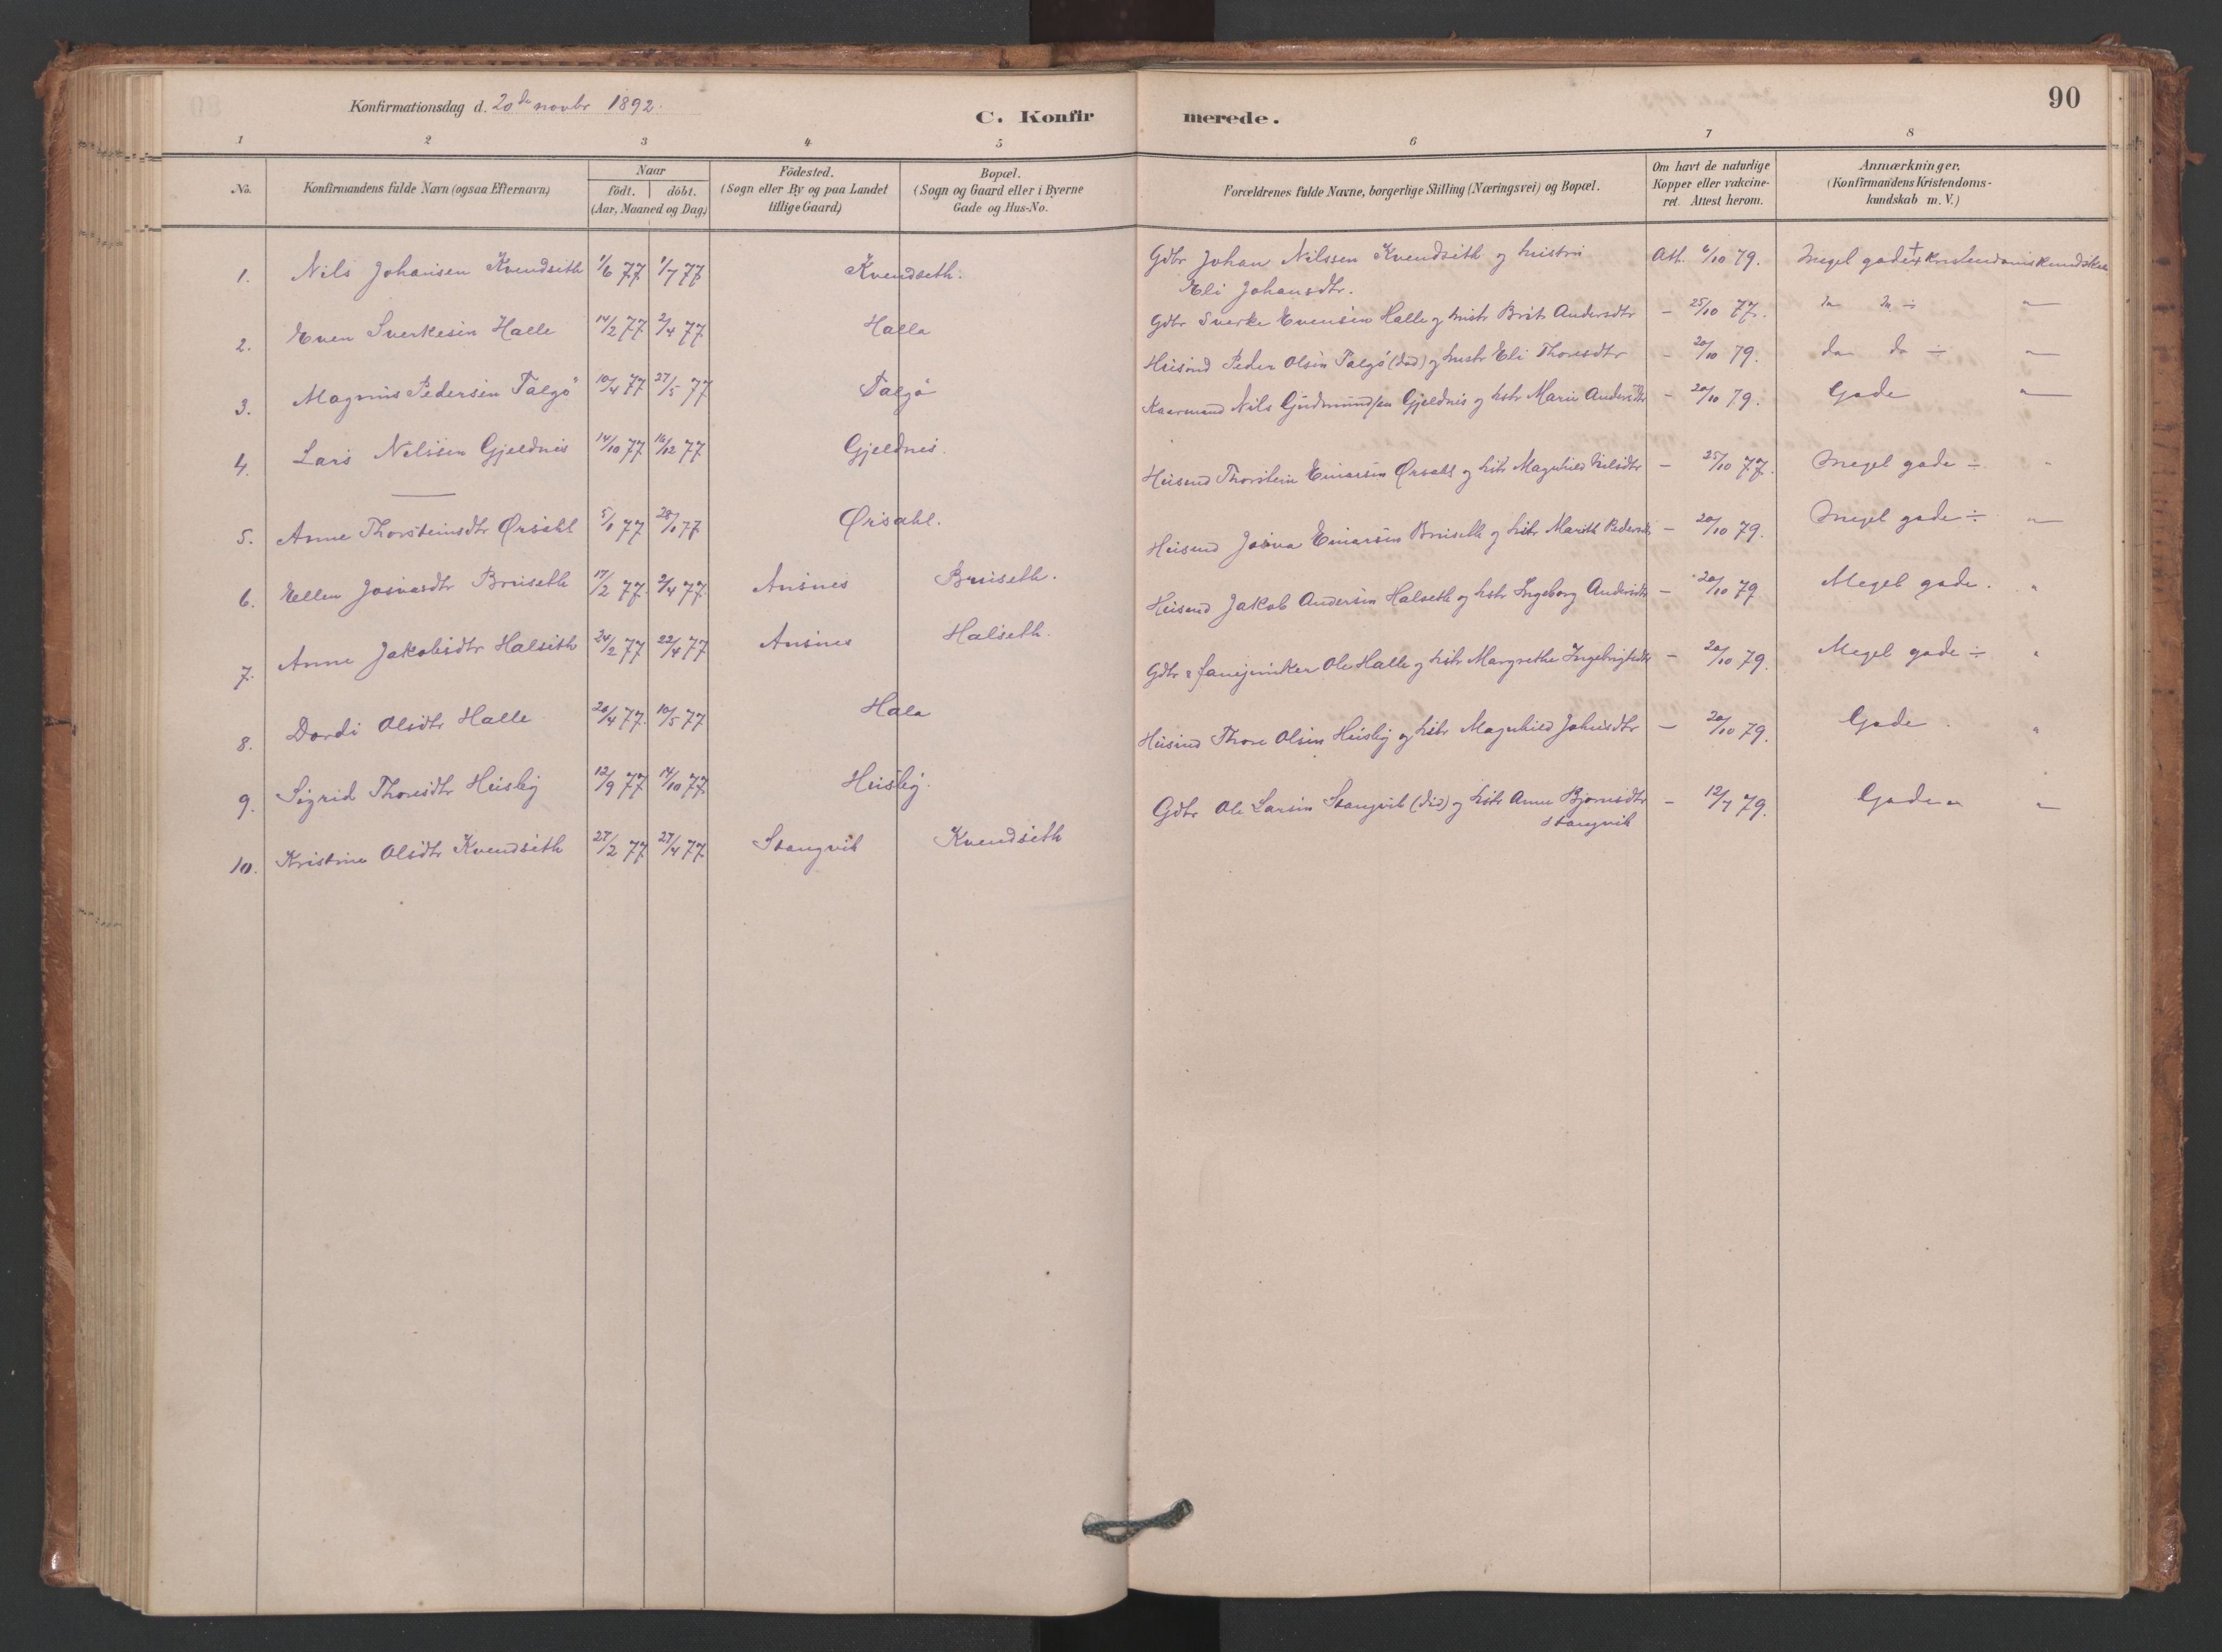 Konfirmationsdag d. 20de novbr 1892.
C. Konfirmerede.
90
1 2 3 4 5 6 7 8
No.
Konfirmandens fulde Navn (ogsaa Efternavn)
Naar
födt. döbt.
(Aar, Maaned og Dag.)
Födested.
(Sogn eller By og paa Landet
tillige Gaard.)
Bopæl.
(Sogn og Gaard eller i Byerne
Gade og Hus-No.
Forældrenes fulde Navne, borgerlige Stilling (Næringsvei) og Bopæl.
Om havt de naturlige
Kopper eller vakcine-
ret. Attest herom.
Anmærkninger.
(Konfirmandens Kristendoms-
kundskab m. V.)
1. Nils Johansen Kvendseth 1/6 77 1/7 77 Kvendseth. Gdbr Johan Nilssen Kvendseth og hustru Att. 6/10 79. Meget gode + Kristendomskundskab
Eli Johansdtr.
2. Even Sverkesen Halle 14/2 77 2/4 77. Halle Gdbr Sverke Evensen Halle og hustr Brit Andersdtr - 25/10 77. do do ÷ "
3. Magnus Pedersen Talgö 10/4 77 27/5 77 Talgö Huismd Peder Olsen Talgö (död) og hustr Eli Thoresdtr - 20/10 79. do do ÷ "
4. Lars Nilssen Gjeldnes 14/10 77 16/12 77 Gjeldnes. Kaarmand Nils Gudmundsen Gjeldnes og hstr Marie Andersdtr - 20/10 79. Gode "
5. Anne Thorsteinsdtr Ørsahl 5/1 77 28/1 77. Ørsahl. Huismd Thorstein Einarsen Ørsahl og hstr Magnhild Nilsdtr - 25/10 77. Meget gode ÷ "
6. Ellen Josvasdtr Bruseth 17/2 77. 2/4 77. Ansnes Bruseth. Huismd Josva Einarsen Bruseth og hstr Marith Pedersdtr - 20/10 79. Meget gode ÷ "
7. Anne Jakobsdtr Halseth 24/2 77 22/4 77 Ansnes Halseth. Huismd Jakob Andersen Halseth og hstr Ingeborg Andersdtr - 20/10 79 Meget gode. "
8. Dordi Olsdtr Halle 20/4 77. 10/5 77 Hale Gdbr & Ole Halle og hstr Margrethe Ingebrigtsdtr - 20/10 79. Meget gode ÷ "
9. Sigrid Thoresdtr Husby 12/9 77 14/10 77. Husby. Huismd Thore Olsen Husby og hstr Magnhild Johnsdtr - 20/10 79. Gode. "
10. Kristine Olsdtr Kvendseth 27/2 77 27/4 77. Stangvik Kvendseth Gdbr Ole Larsen Stangvik (död) og hstr Anne Bjornsdtr - 12/7 79. Gode "
Stangvik